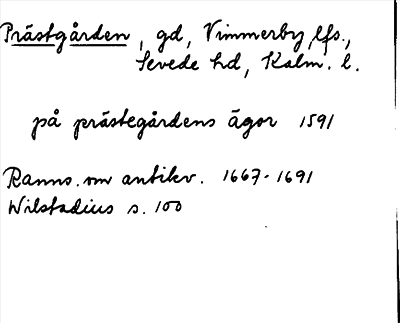 Prästgården, gd, Vimmerby lfs.,
Sevede hd, Kalm. l.
på prästegårdens ägor 1591
Ranns. om antikv. 1667-1691
Wilstadius s. 100